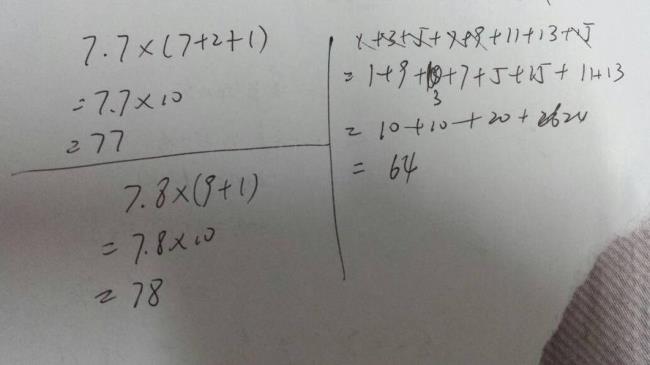 7.7×(7+2+1)
=7.7×10
=77
7.8×(9+1)
=7.8×10
=78
1+3+5+7+9+11+13+15
=1+9+3+7+5+15+11+13
=10+10+20+24
=64